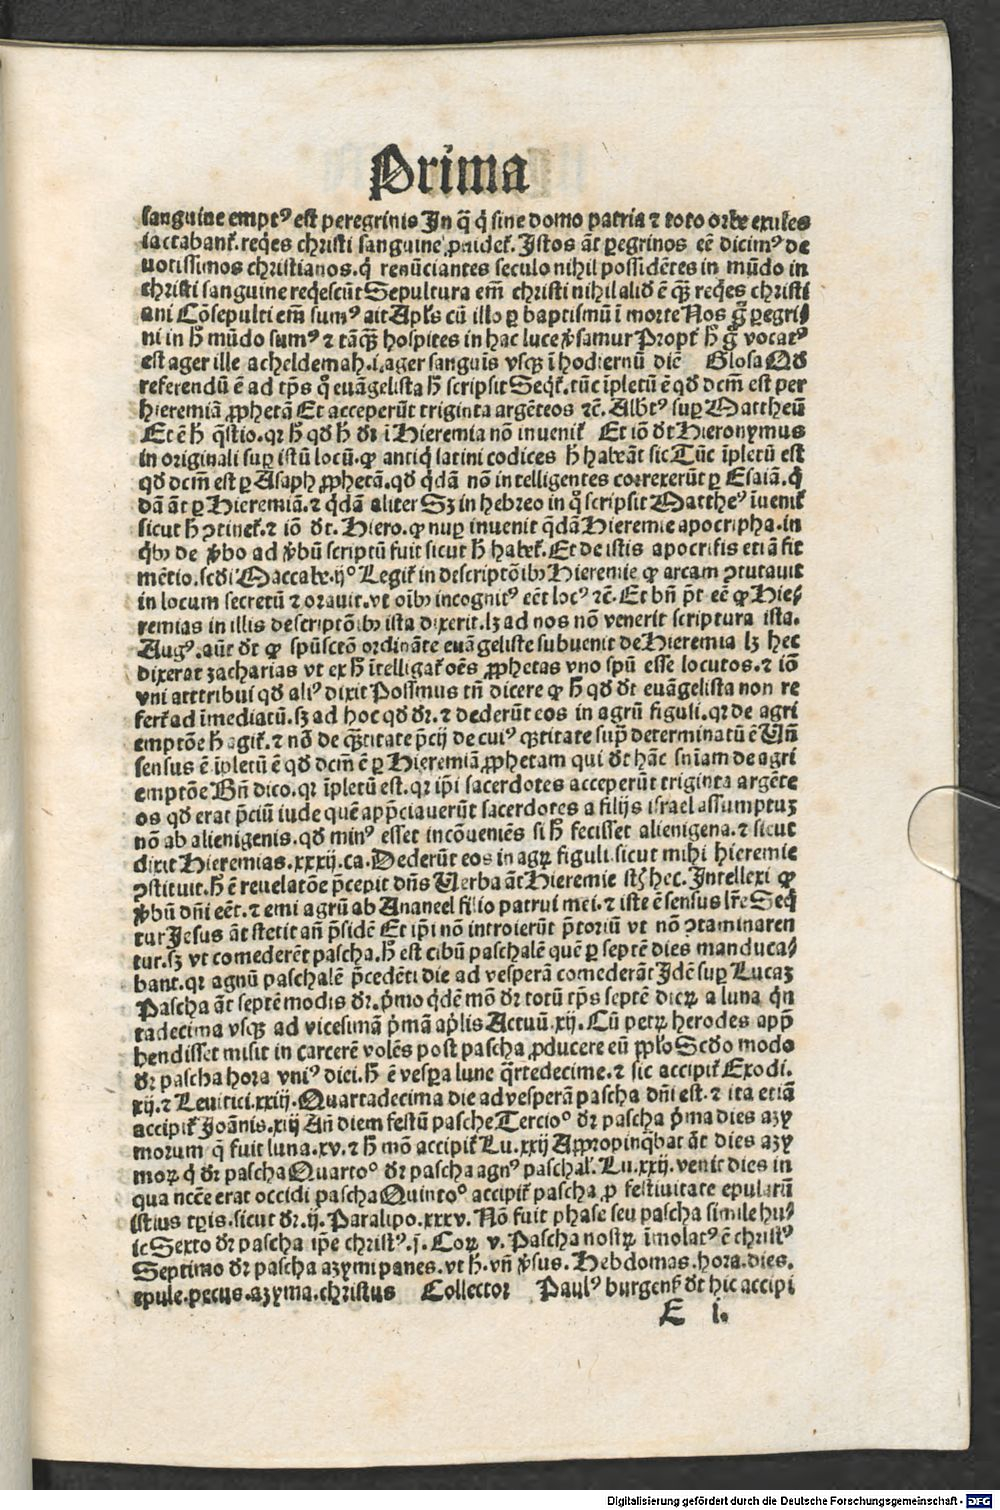 Prima
sanguine empt⁹ est peregrinis In q̄ q̇ sine domo patria ⁊ toto orbe exules
iactabant᷑. reqͥes christi sanguine ꝓuidet᷑. Istos āt ꝑegrinos eē dicim⁹ de
uotissimos christianos. q̇ renūciantes seculo nihil possidētes in mūdo in
christi sanguine reqͥescūt Sepultura em̄ christi nihil aliđ ē qꝫ̄ reqͥes christi
ani Cōsepulti em̄ sum⁹ ait Apl̓s cū illo ꝑ baptismū ī morte Nos gͦ ꝑegri⸗
ni in ħ mūdo sum⁹ ⁊ tāqꝫ̄ hospites in hac luce v̓samur Propt᷑ ħ gͦ vocat⁹
est ager ille acheldemah .i. ager sanguīs vsqꝫ ī hodiernū diē Glosa Qđ
referendū ē ad tp̄s qͦ euāgelista ħ scripsit Seqͥt᷑. tūc īpletū ē qđ dcm̄ est per
hieremiā ꝓphetā Et acceperūt triginta argēteos ⁊c̄. Alb̓t⁹ suꝑ Mattheū
Et ē ħ q̄stio. qꝛ ħ qđ ħ dr̄ ī Hieremia nō inuenit᷑ Et iō đt Hieronymus
in originali suꝑ istū locū. ꝙ antiqͥ latini codices ħ habēāt sic Tūc īpletū est
qđ dcm̄ est ꝑ Asaph ꝓphetā. qđ qͥdā nō intelligentes correxerūt ꝑ Esaiā. qͥ
dā āt ꝑ Hieremiā. ⁊ qͥdā aliter Sꝫ in hebreo in qͦ scripsit Matthe⁹ īuenit᷑
sicut ħ ꝯtinet᷑. ⁊ iō đt. Hiero. ꝙ nuꝑ inuenit qͥdā Hieremie apocripha. in
qͥbꝫ de v̓bo ad v̓bū scriptū fuit sicut ħ habet᷑. Et de istis apocrifis etiā fit
mētio. scđi Maccabe. ijͦ Legit᷑ in descriptōibꝫ Hieremie ꝙ arcam ꝯtutauit
in locum secretū ⁊ orauit. vt oībꝫ incognit⁹ eēt loc⁹ ⁊c̄. Et bn̄ pt̄ eē ꝙ Hie⸗
remias in illis descriptōibꝫ ista dixerit. lꝫ ad nos nō venerit scriptura ista.
Aug⁹. aūt đt ꝙ spūsctō ordināte euāgeliste subuenit de Hieremia lꝫ hec
dixerat zacharias vt ex ħ ītelligat᷑ oēs ꝓphetas vno spū esse locutos. ⁊ iō
vni atttribui qđ ali⁹ dixit Possmus tn̄ dicere ꝙ ħ qđ đt euāgelista non re
fert᷑ ad īmediatū. sꝫ ad hoc qđ dr̄. ⁊ dederūt eos in agrū figuli. qꝛ de agri
emptōe ħ agit᷑. ⁊ nō de qͣtitate p̄cij de cui⁹ qͣtitate supͣ determinatū ē Vn̄
sensus ē īpletū ē qđ dcm̄ ē ꝑ Hieremiā ꝓphetam qui đt hāc sniam de agri
emptōe Bn̄ dico. qꝛ īpletū est. qꝛ ip̄i sacerdotes acceperūt triginta argēte
os qđ erat p̄ciū iude quē app̄ciauerūt sacerdotes a filijs israel assumptuꝫ
nō ab alienigenis. qđ min⁹ esset incōueniēs si ħ fecisset alienigena. ⁊ sicut
dixit Hieremias. xxxij. ca. Dederūt eos in agꝝ figuli. sicut mihi hieremie
ꝯstituit. ħ ē reuelatōe p̄cepit dn̄s Verba āt Hieremie st̄ hec. Intellexi ꝙ
v̓bū dn̄i eēt. ⁊ emi agrū ab Ananeel filio patrui mei. ⁊ iste ē sensus lr̄e Seqͥ
tur Iesus āt stetit an̄ p̄sidē Et ip̄i nō introierūt p̄toriū vt nō ꝯtaminaren
tur. sꝫ vt comederēt pascha. ħ est cibū paschalē quē ꝑ septē dies manduca⸗
bant. qꝛ agnū paschalē p̄cedēti die ad vesperā comederāt Idē suꝑ Lucaꝫ
Pascha āt septē modis dr̄. pͥmo qͥdē mō dr̄ totū tp̄s septē dieꝝ a luna qͥn
tadecima vsqꝫ ad vicesimā pͥmā apͥlis Actuū. xij. Cū petꝝ herodes app̄
hendisset misit in carcerē volēs post pascha ꝓducere eū ppl̓o Scđo modo
dr̄ pascha hora vni⁹ diei. ħ ē vesꝑa lune qͣrtedecime. ⁊ sic accipit᷑ Exodi.
xij. ⁊ Leuitici. xxiij. Quartadecima die ad vesperā pascha dn̄i est. ⁊ ita etiā
accipit᷑ Joānis. xiij An̄ diem festū pasche Tercioͦ dr̄ pascha pͥma dies azy
morum q̄ fuit luna. xv. ⁊ ħ mō accipit᷑ Lu. xxij Appropinqͣbat āt dies azy
moꝝ qͥ dr̄ pascha Quartoͦ dr̄ pascha agn⁹ paschal̓. Lu. xxij. venit dies in
qua ncc̄e erat occidi pascha Quintoͦ accipit᷑ pascha ꝓ festiuitate epularū
istius tꝑis. sicut dr̄. ij. Paralipo. xxxv. Nō fuit phase seu pascha simile hu⸗
ic Sexto dr̄ pascha ip̄e christ⁹. j. Coꝝ v. Pascha nostꝝ īmolat⁹ ē christ⁹
Septimo dr̄ pascha azymi panes. vt ħ. vn̄ v̓sus. Hebdomas. hora. dies.
epule. pecus. azyma. christus Collector Paul⁹ burgen̄ đt hic accipi
E i.
Digitalisierung gefördert durch die Deutsche Forschungsgemeinschaft - DFG